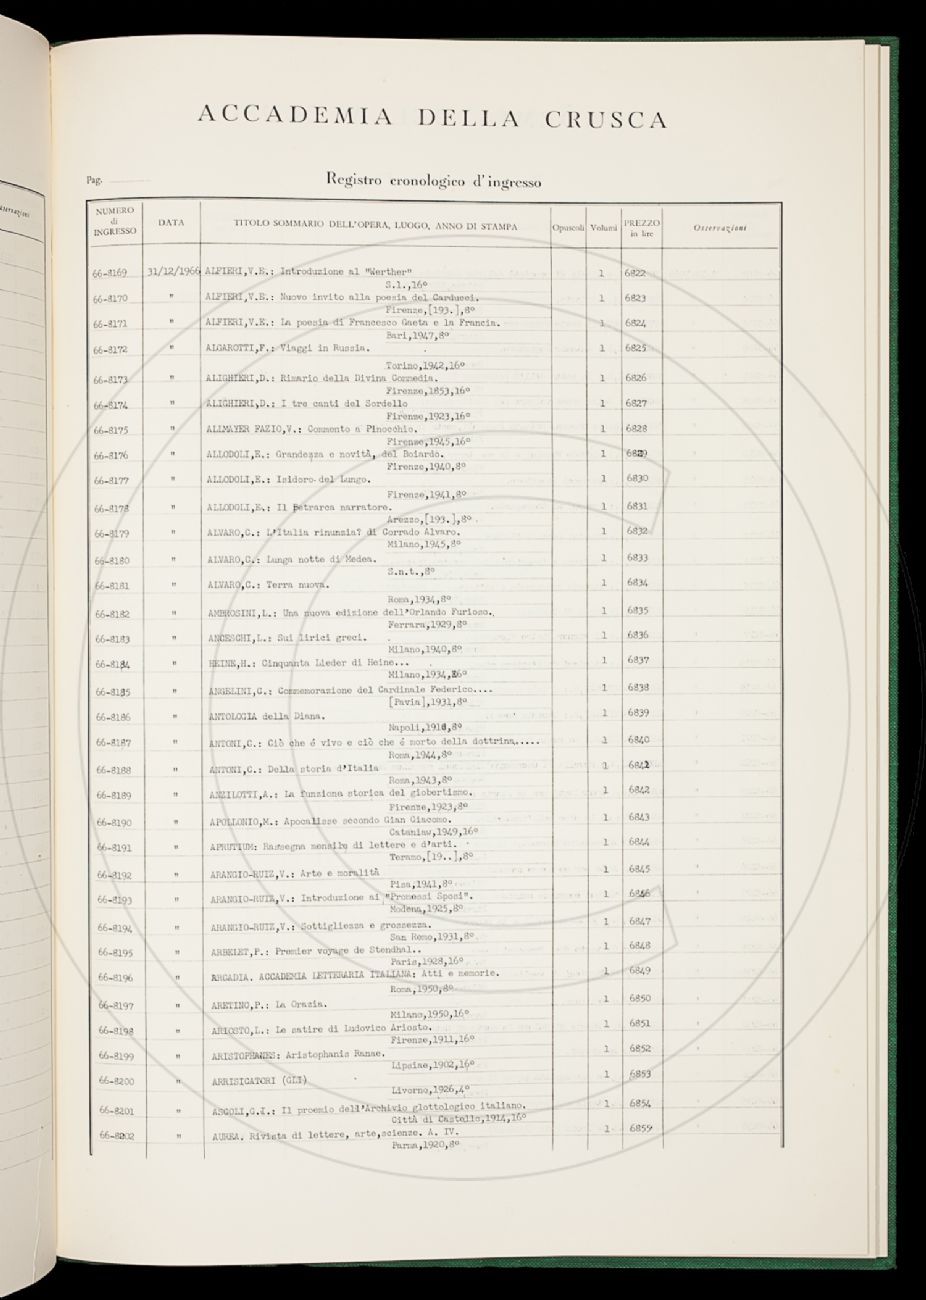 Osservazioni
ACCADEMIA DELLA CRUSCA
Pag.
Registro cronologico d'ingresso
NUMERO di INGRESSO DATA TITOLO SOMMARIO DELL'OPERA, LUOGO, ANNO DI STAMPA Opuscoli Volumi PREZZO in lire Osservazioni
66-8169 31/12/1966 ALFIERI,V.E.: Introduzione al "Werther" 1 6822
S.l.,16º
66-8170 " ALFIERI,V.E.: Nuovo invito alla poesia del Carducci. 1 6823
Firenze,[193.],8º
66-8171 " ALFIERI,V.E.: La poesia di Francesco Gaeta e la Francia. 1 6824
Bari,1947,8º
66-8172 " ALGAROTTI,F.: Viaggi in Russia. 1 6825
Torino,1942,16º
66-8173 " ALIGHIERI,D.: Rimario della Divina Commedia. 1 6826
Firenze,1853,16º
66-8174 " ALIGHIERI,D.: I tre canti del Sordello 1 6827
Firenze,1923,16º
66-8175 " ALLMAYER FAZIO,V.: Commento a Pinocchio. 1 6828
Firenze,1945,16º
66-8176 " ALLODOLI,E.: Grandezza e novità, del Boiardo. 1 6829
Firenze,1940,8º
66-8177 " ALLODOLI,E.: Isidoro del Lungo. 1 6830
Firenze,1941,8º
66-8178 " ALLODOLI,E.: Il Petrarca narratore. 1 6831
Arezzo,[193.],8º
66-8179 " ALVARO,C.: L'Italia rinunzia? di Corrado Alvaro. 1 6832
Milano,1945,8º
66-8180 " ALVARO,C.: Lunga notte di Medea. 1 6833
S.n.t.,8º
66-8181 " ALVARO,C.: Terra nuova. 1 6834
Roma,1934,8º
66-8182 " AMBROSINI,L.: Una nuova edizione dell'Orlando Furioso. 1 6835
Ferrara,1929,8º
66-8183 " ANCESCHI,L.: Sui lirici greci. 1 6836
Milano,1940,8º
66-8184 " HEINE,H.: Cinquanta Lieder di Heine... 1 6837
Milano,1934,16º
66-8185 " ANGELINI,C.: Commemorazione del Cardinale Federico.... 1 6838
[Pavia],1931,8º
66-8186 " ANTOLOGIA della Diana. 1 6839
Napoli,1918,8º
66-8187 " ANTONI,C.: Ciò che é vivo e ciò che é morto della dottrina..... 1 6840
Roma,1944,8º
66-8188 " ANTONI,C.: Della storia d'Italia 1 6841
Roma,1943,8º
66-8189 " ANZILOTTI,A.: La funziona storica del giobertismo. 1 6842
Firenze,1923,8º
66-8190 " APOLLONIO,M.: Apocalisse secondo Gian Giacomo. 1 6843
Cataniaw,1949,16º
66-8191 " APRUTIUM: Rassegna mensile di lettere e d'arti. 1 6844
Teramo,[19..],8º
66-8192 " ARANGIO-RUIZ,V.: Arte e moralità 1 6845
Pisa,1941,8º
66-8193 " ARANGIO-RUIZ,V.: Introduzione ai "Promessi Sposi". 1 6846
Modena,1925,8º
66-8194 " ARANGIO-RUIZ,V.: Sottigliezza e grossezza. 1 6847
San Remo,1931,8º
66-8195 " ARBELET,P.: Premier voyage de Stendhal.. 1 6848
Paris,1928,16º
66-8196 " ARCADIA. ACCADEMIA LETTERARIA ITALIANA: Atti e memorie. 1 6849
Roma,1950,8º
66-8197 " ARETINO,P.: La Orazia. 1 6850
Milano,1950,16º
66-8198 " ARIOSTO,L.: Le satire di Ludovico Ariosto. 1 6851
Firenze,1911,16º
66-8199 " ARISTOPHANES: Aristophanis Ranae. 1 6852
Lipsiae,1902,16º
66-8200 " ARRISICATORI (GLI) 1 6853
Livorno,1926,4º
66-8201 " ASCOLI,G.I.: Il proemio dell'Archivio glottologico italiano. 1 6854
Città di Castello,1914,16º
66-8202 " AUREA. Rivista di lettere, arte,scienze. A. IV. 1 6855
Parma,1920,8º